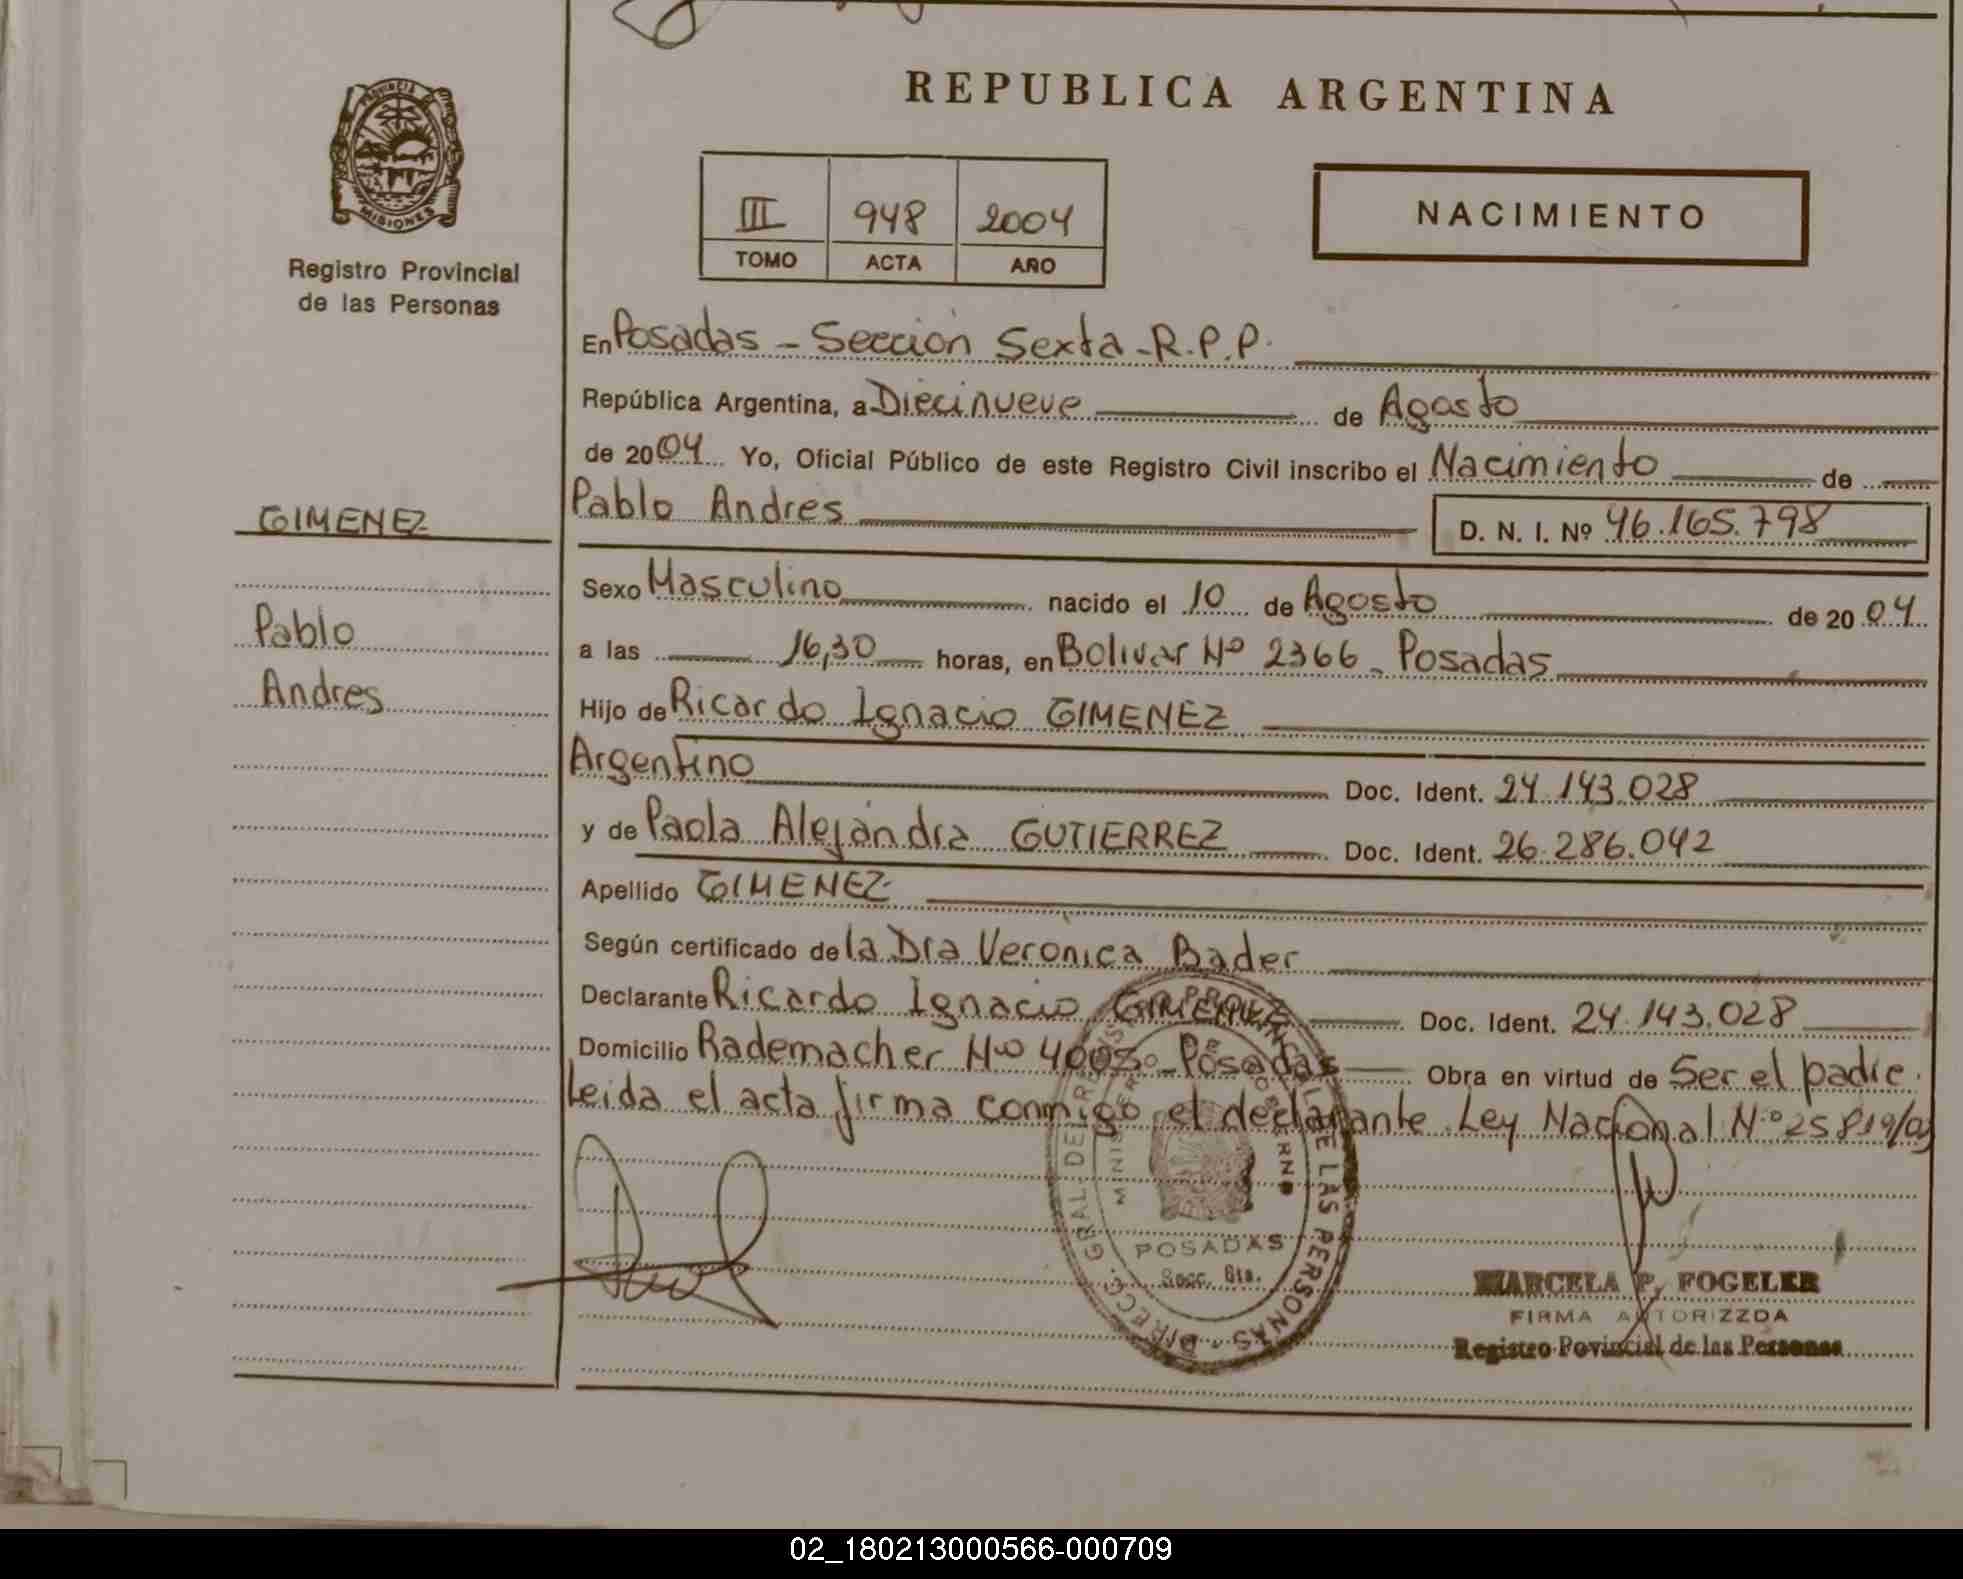 REPUBLICA ARGENTINA
PROVINCIA DE
MISIONES
Registro Provincial
de las Personas
III 948 2004
TOMO ACTA AÑO
NACIMIENTO
En Posadas - Sección Sexta - R.P.P.
República Argentina, a Diecinueve de Agosto
de 2004 Yo, Oficial Público de este Registro Civil inscribo el Nacimiento de
GIMENEZ
Pablo Andres D. N. I. Nº 46.165.798
Sexo Masculino nacido el 10 de Agosto de 2004
Pablo
a las 16,30 horas, en Bolivar Nº 2366 - Posadas
Andres
Hijo de Ricardo Ignacio GIMENEZ
Argentino Doc. Ident. 24.143.028
y de Paola Alejandra GUTIERREZ Doc. Ident. 26.286.042
Apellido GIMENEZ
Según certificado de la Dra Veronica Bader
Declarante Ricardo Ignacio GIMENEZ Doc. Ident. 24.143.028
Domicilio Rademacher Nº 4005 - Posadas Obra en virtud de Ser el padre.
Leida el acta firma conmigo el declarante Ley Nacional Nº 25819/03
DIRECC. GRAL. DEL REGIST. PROVINCIAL DE LAS PERSONAS
POSADAS
Secc. 6ta.
MARCELA P. FOGELER
FIRMA AUTORIZZDA
Registro Povincial de las Personas
02_180213000566-000709